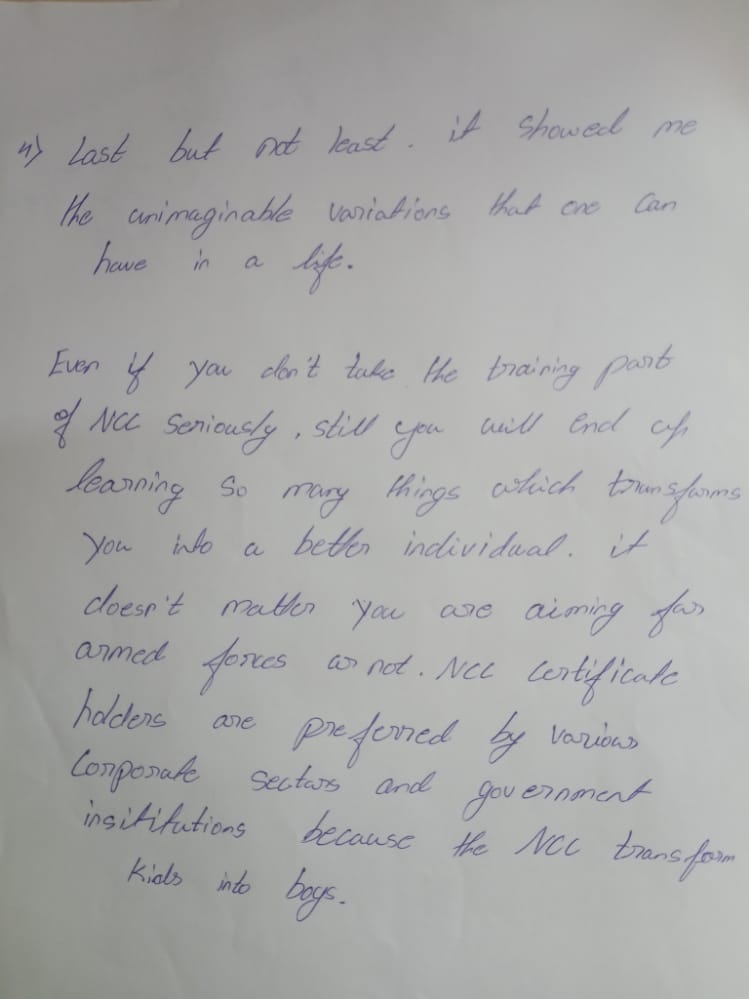 4) Last but not least. it showed me
the unimaginable variations that one can
have in a life.
Even if you don't take the training part
of NCC seriously, still you will end up
learning so many things which transforms
you into a better individual. it
doesn't matter you are aiming for
armed forces or not. NCC certificate
holders are preferred by various
corporate sectors and government
insititutions because the NCC transform
kids into boys.